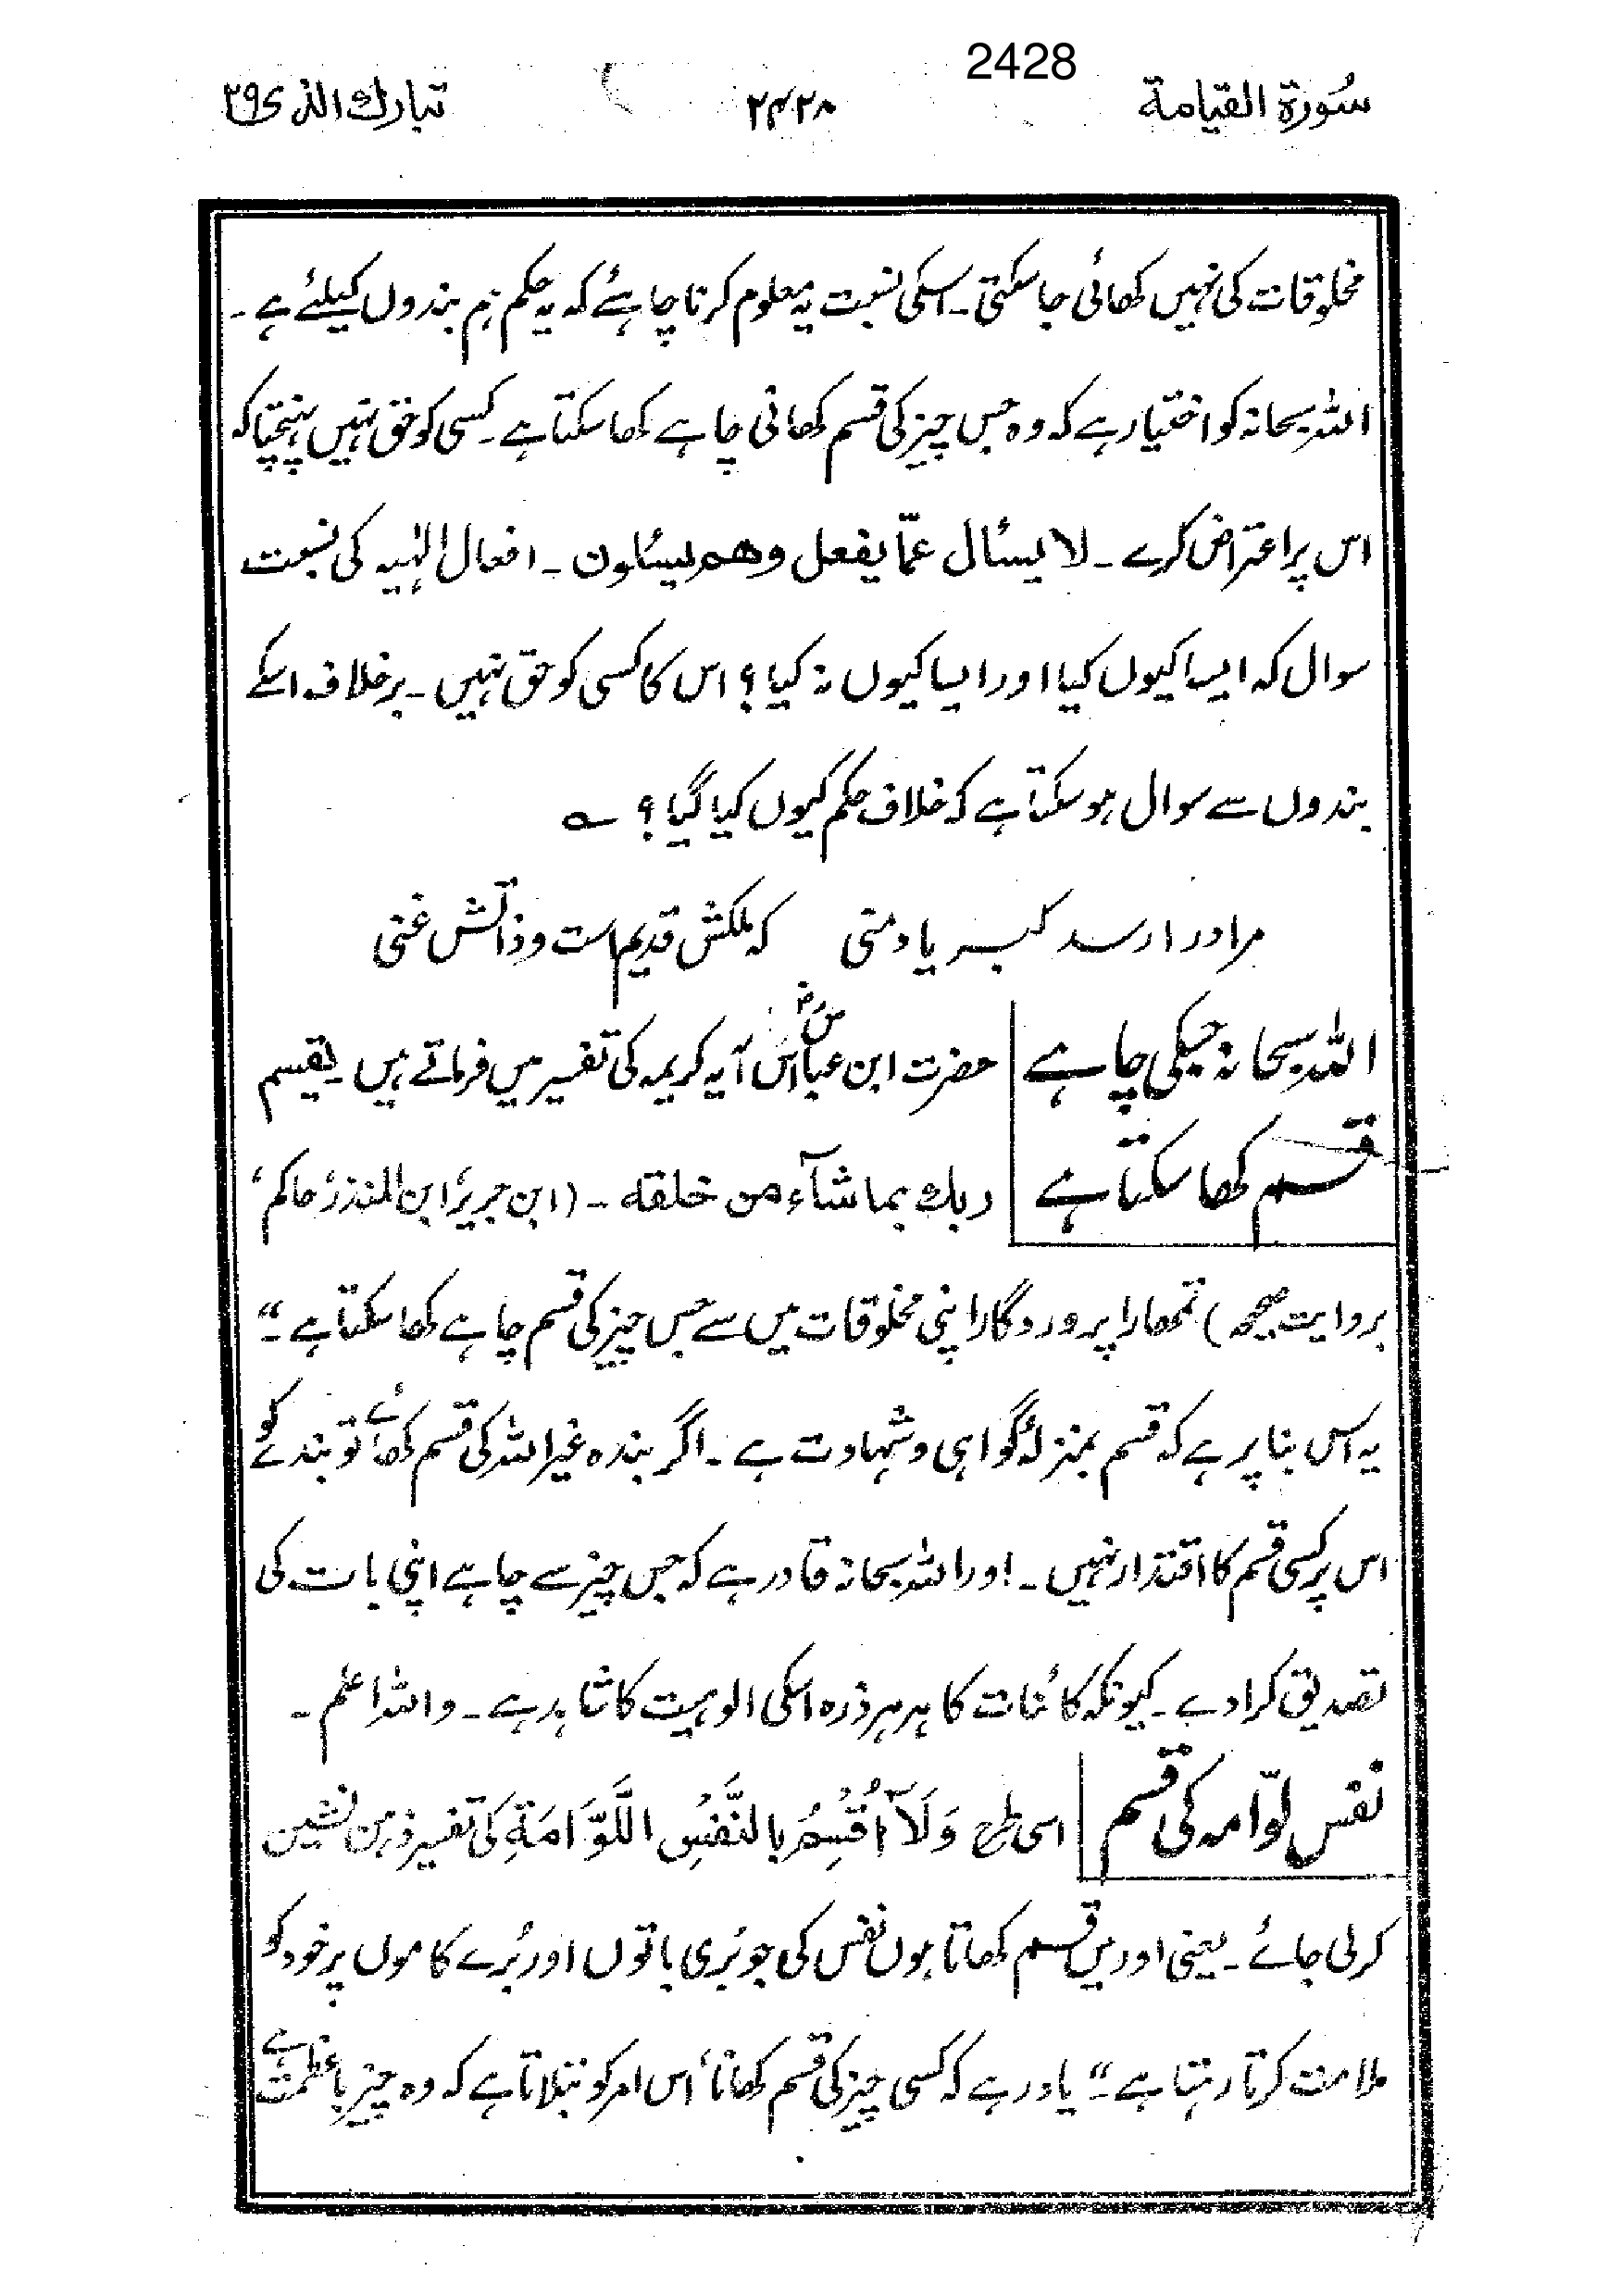 2428
سُورة القيامة ۲۴۲۸ تبارك الذی ۲۹
مخلوقات کی نہیں کھائی جاسکتی۔ اسکی نسبت یہ معلوم کرنا چاہئے کہ یہ حکم ہم بندوں کیلئے ہے۔
اللہ سبحانہ کو اختیار ہے کہ وہ جس چیز کی قسم کھانی چاہے کھا سکتا ہے۔ کسی کو حق نہیں پہنچتا کہ
اس پر اعتراض کرے۔ لا يسأل عمّا يفعل وهم يسئلون۔ افعال الٰہیہ کی نسبت
سوال کہ ایسا کیوں کیا اور ایسا کیوں نہ کیا؟ اس کا کسی کو حق نہیں۔ برخلاف اسکے
بندوں سے سوال ہوسکتا ہے کہ خلاف حکم کیوں کیا گیا؟ ؎
مراورا رسد کبریا و منی کہ ملکش قدیم است و ذاتش غنی
اللہ سبحانہ جسکی چاہے
قسم کھا سکتا ہے
حضرت ابن عباسؓ اس آیہ کریمہ کی تفسیر میں فرماتے ہیں يقسم
ربك بما شآء من خلقه۔ (ابن جریر، ابن المنذر، حاکم،
بروایت صحیحہ) تمھارا پروردگار اپنی مخلوقات میں سے جس چیز کی قسم چاہے کھا سکتا ہے۔"
یہ اس بنا پر ہے کہ قسم بمنزلۂ گواہی و شہادت ہے۔ اگر بندہ غیر اللہ کی قسم کھائے تو بندے کو
اس پر کسی قسم کا اقتدار نہیں۔ اور اللہ سبحانہ قادر ہے کہ جس چیز سے چاہے اپنی بات کی
تصدیق کرادے۔ کیونکہ کائنات کا ہر ہر ذرہ اسکی الوہیت کا شاہد ہے۔ واللہ اعلم۔
نفس لوّامہ کی قسم
اسی طرح وَلَآ اُقْسِمُ بِالنَّفْسِ اللَّوَّامَةِ کی تفسیر ذہن نشین
کرلی جائے۔ یعنی اور میں قسم کھاتا ہوں نفس کی جو بُری باتوں اور بُرے کاموں پر خود کو
ملامت کرتا رہتا ہے۔" یاد رہے کہ کسی چیز کی قسم کھانا، اس امر کو بتلاتا ہے کہ وہ چیز باعظمت ہے